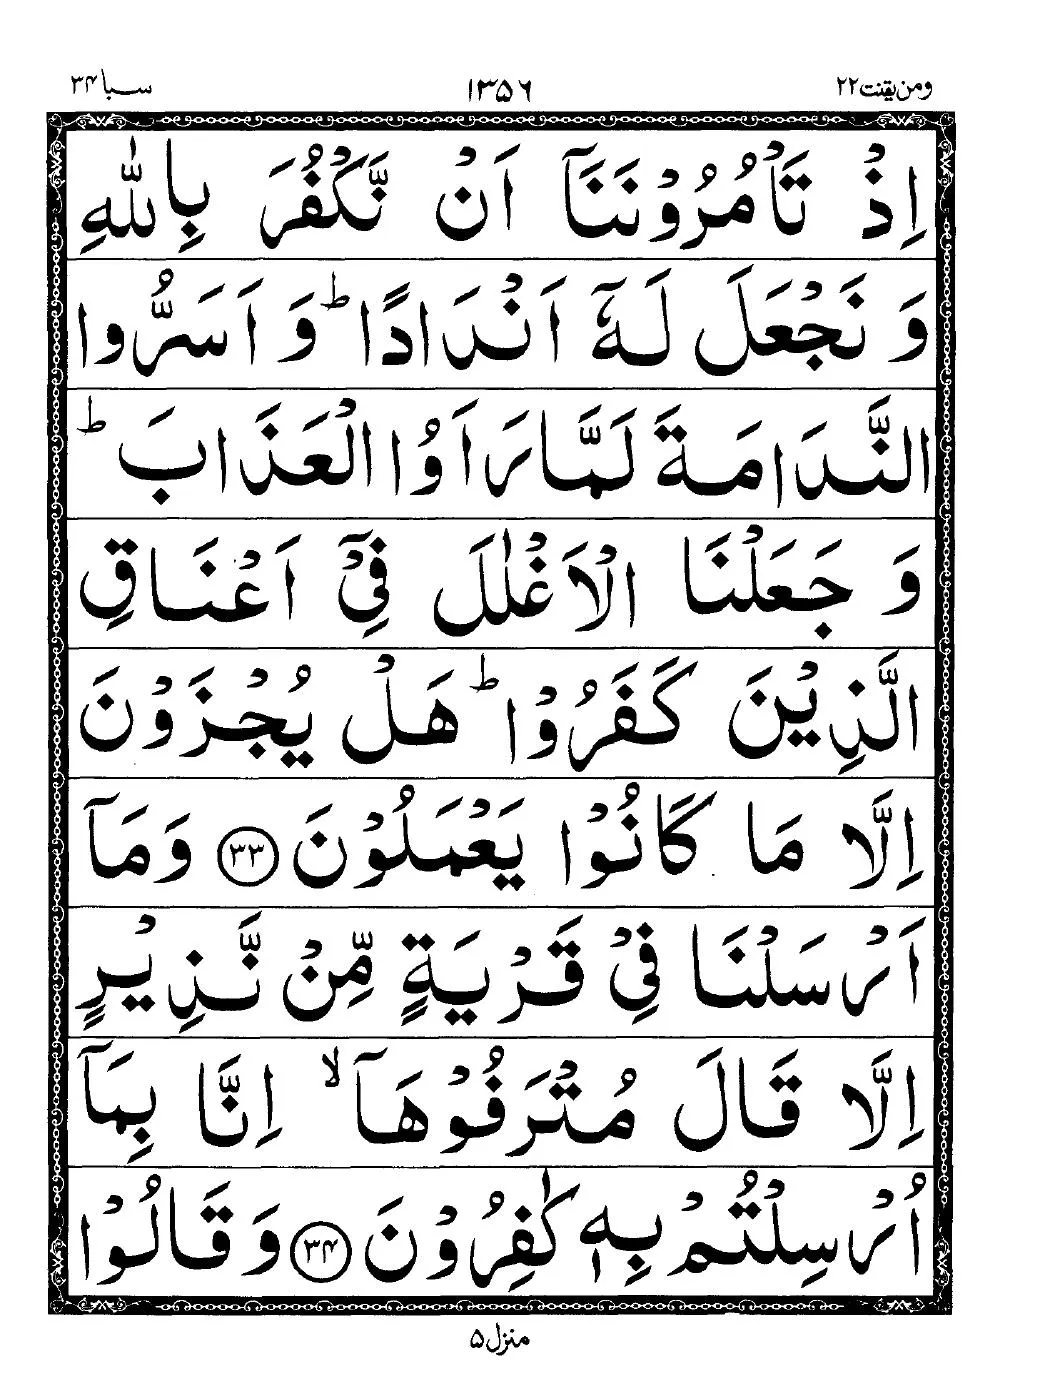 ومن يقنت ٢٢ ١٣٥٦ سبا ٣٤
اِذْ تَاْمُرُوْنَنَاۤ اَنْ نَّكْفُرَ بِاللّٰهِ
وَ نَجْعَلَ لَهٗۤ اَنْدَادًاؕ وَ اَسَرُّوا
النَّدَامَةَ لَمَّا رَاَوُا الْعَذَابَؕ
وَ جَعَلْنَا الْاَغْلٰلَ فِیْۤ اَعْنَاقِ
الَّذِیْنَ كَفَرُوْاؕ هَلْ یُجْزَوْنَ
اِلَّا مَا كَانُوْا یَعْمَلُوْنَ ﴿٣٣﴾ وَمَاۤ
اَرْسَلْنَا فِیْ قَرْیَةٍ مِّنْ نَّذِیْرٍ
اِلَّا قَالَ مُتْرَفُوْهَاۤۙ اِنَّا بِمَاۤ
اُرْسِلْتُمْ بِهٖ كٰفِرُوْنَ ﴿٣٤﴾ وَقَالُوْا
منزل ٥